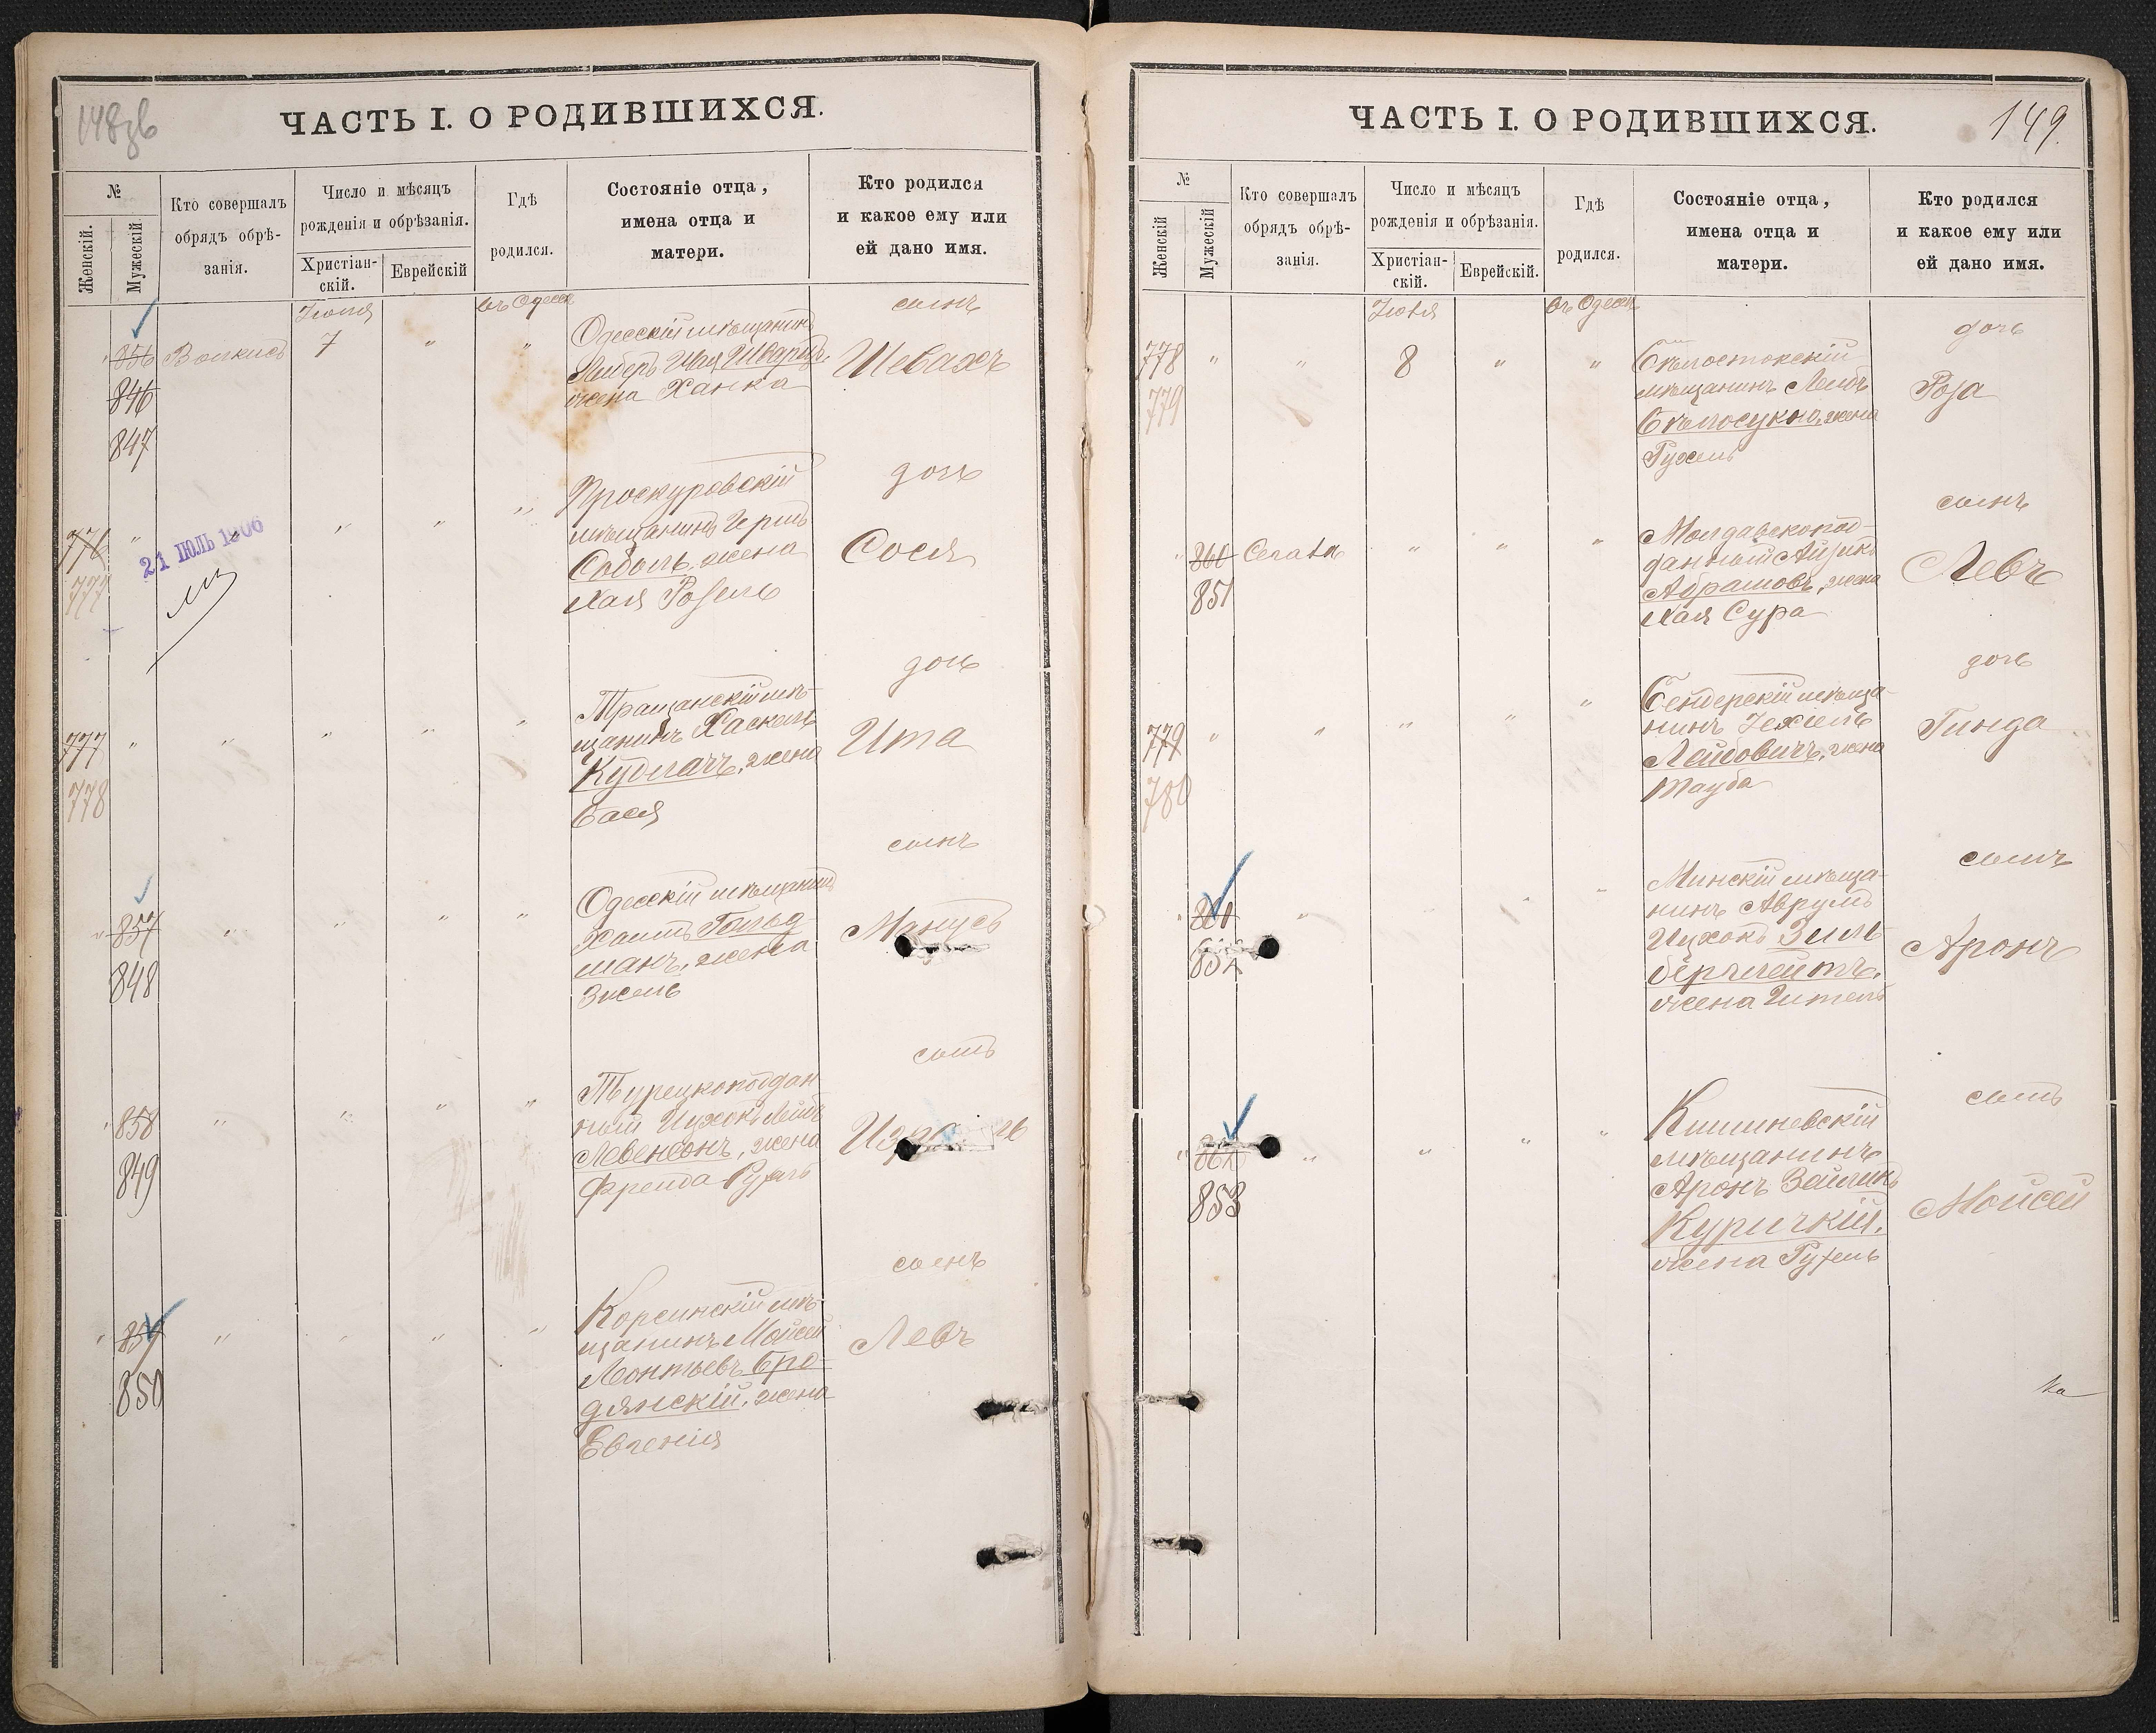 148зв
ЧАСТЬ I. О РОДИВШИХСЯ.
№
Женскій.
Мужескій
Кто совершалъ
обрядъ обрѣ-
занія.
Число и мѣсяцъ
рожденія и обрѣзанія.
Христіан-
скій.
Еврейскій
Гдѣ
родился.
Состояніе отца,
имена отца и
матери.
Кто родился
и какое ему или
ей дано имя.
Іюля
въ Одессѣ
сынъ
" 856
846
847
7
"
"
Одесскій мѣщанинъ
Шварцъ,
жена Ханка
Шевахъ
дочь
776
777
"
21 ІЮЛЬ 1906
"
"
"
Проскуровскій
мѣщанинъ Герш
Соболь, жена
Хая Розель
Сося
дочь
777
778
"
"
"
"
"
Тращанскій мѣ-
щанинъ Хаскель
Кудлачъ, жена
Бася
Ита
сынъ
" 857
848
"
"
"
"
Одесскій мѣщанинъ
Хаимъ Гольд-
манъ, жена
Зисель
Манусъ
сынъ
" 858
849
"
"
"
"
Турецкоподдан
ный Ицхокъ Лейб
Левенсонъ, жена
Фрейда Рухль
сынъ
" 859
850
"
"
"
"
Корсунскій мѣ-
щанинъ Мойсей
Леонтьевъ Бро-
дянскій, жена
Евгенія
Левъ
149.
ЧАСТЬ I. О РОДИВШИХСЯ.
№
Женскій
Мужескій
Кто совершалъ
обрядъ обрѣ-
занія.
Число и мѣсяцъ
рожденія и обрѣзанія.
Христіан-
скій.
Еврейскій.
Гдѣ
родился.
Состояніе отца,
имена отца и
матери.
Кто родился
и какое ему или
ей дано имя.
Іюля
въ Одессѣ
дочь
778
779
"
"
8
"
"
Бѣлостокскій
мѣщанинъ Лейбъ
Бѣлосукно, жена
Рухель
Роза
сынъ
" 860
851
"
"
"
Молдавскопод-
данный Айзикъ
Абрамовъ, жена
Хая Сура
Левъ
дочь
779
780
"
"
"
"
"
Бендерскій мѣща-
нинъ Іехіель
Лейбовичъ, жена
Тауба
Гинда
сынъ
" 861
852
"
"
"
Минскій мѣща-
нинъ Аврумъ
Ицхокъ Зиль-
берглейтъ,
жена Ител
Аронъ
сынъ
" 862
853
"
"
"
"
Кишиневскій
мѣщанинъ
Аронъ Зейликъ
Куричкій,
жена Рухель
Мойсей